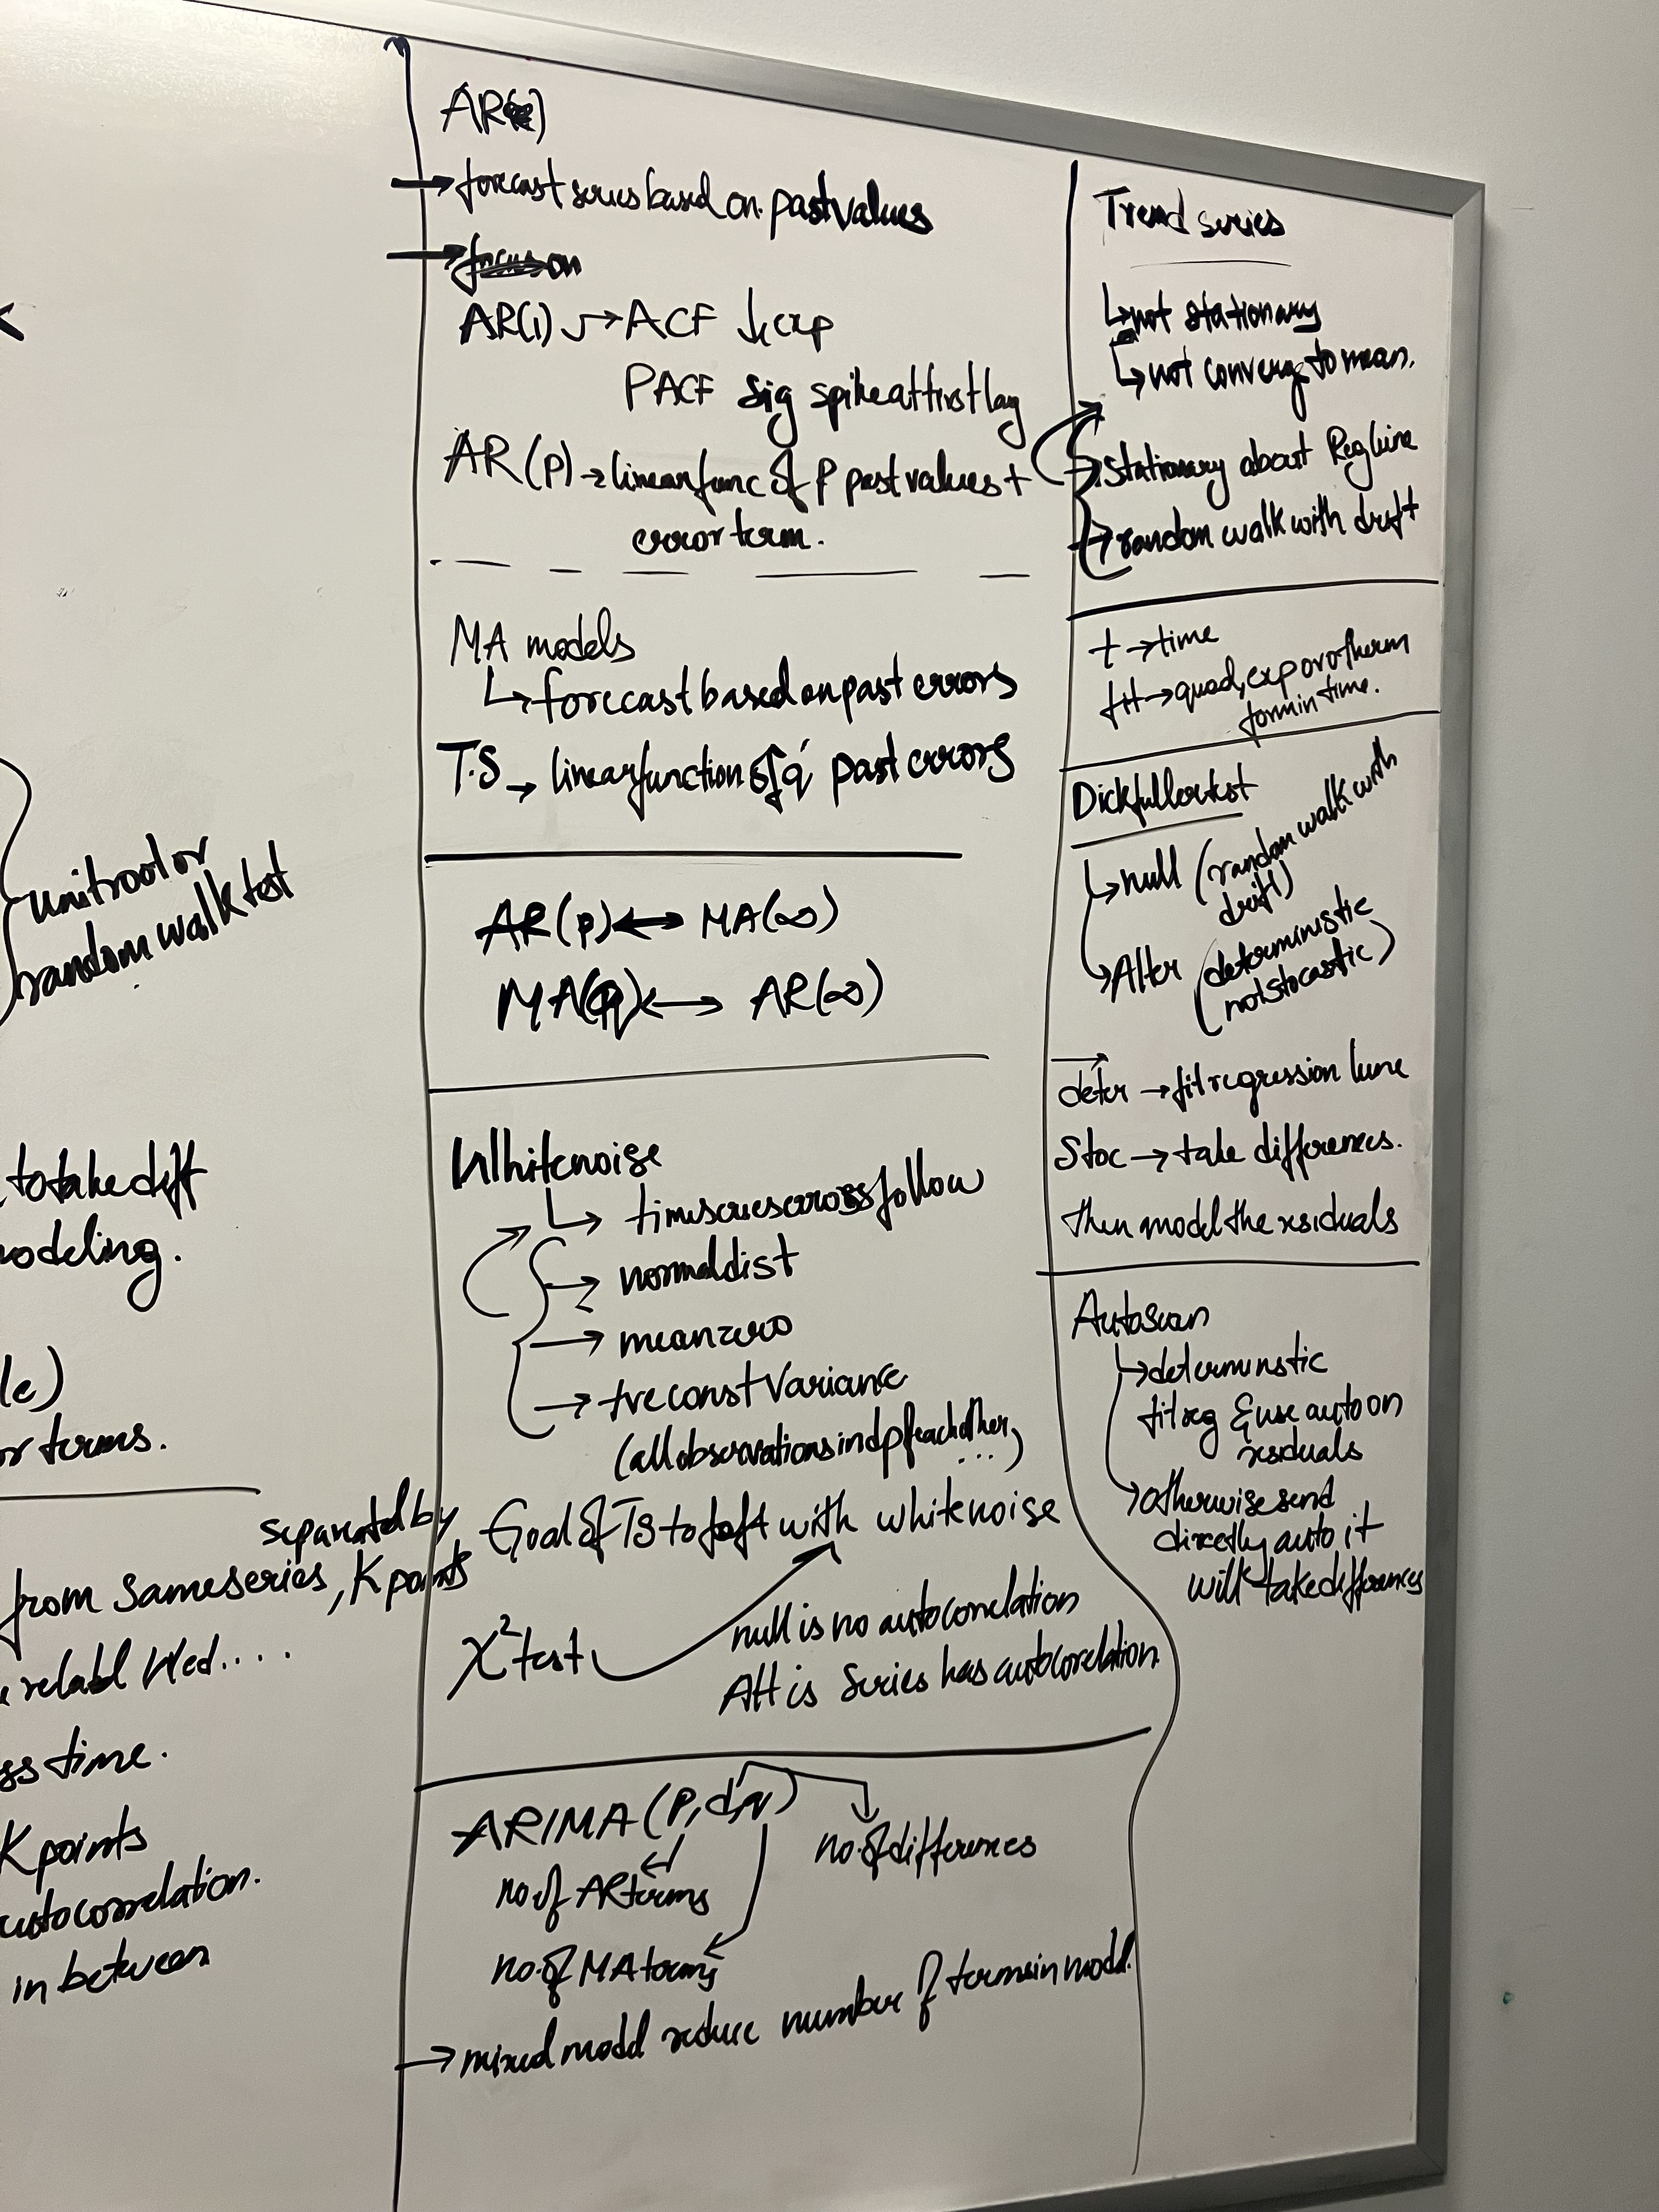 unitroot or
random walk test
to take diff
modeling.
le)
or terms.
separated by
from same series, K points
relabl Wed....
ss time.
K points
autocorrelation.
in between
AR( )
→ forecast series based on past values
→ focus on
AR(1) → ACF ↓ exp
PACF sig spike at first lag
AR(p) → linear func of p past values +
error term.
MA models
↳ forecast based on past errors
T.S → linear function of q past errors
AR(p) ↔ MA(∞)
MA(q) ↔ AR(∞)
White noise
↳ time series errors follow
→ normal dist
→ mean zero
→ +ve const variance
(all observations indp of each other, ...)
Goal of TS to left with white noise
χ² test
null is no autocorrelation
Alt is series has autocorelation
ARIMA(p,d,q)
no. of differences
no. of AR terms
no. of MA terms
→ mixed model reduce number of terms in model.
Trend series
↳ not stationary
↳ not converge to mean.
→ stationary about Reg line
→ random walk with drift
t → time
fit → quad, exp or otherm
form in time.
Dickfuller test
↳ null (random walk with
drift)
↳ Alter (deterministic
not stocastic)
deter → fit regression line
Stoc → take differences.
then model the residuals
Autoscan
↳ deterministic
fit reg & use auto on
residuals
↳ otherwise send
directly auto it
will take differences